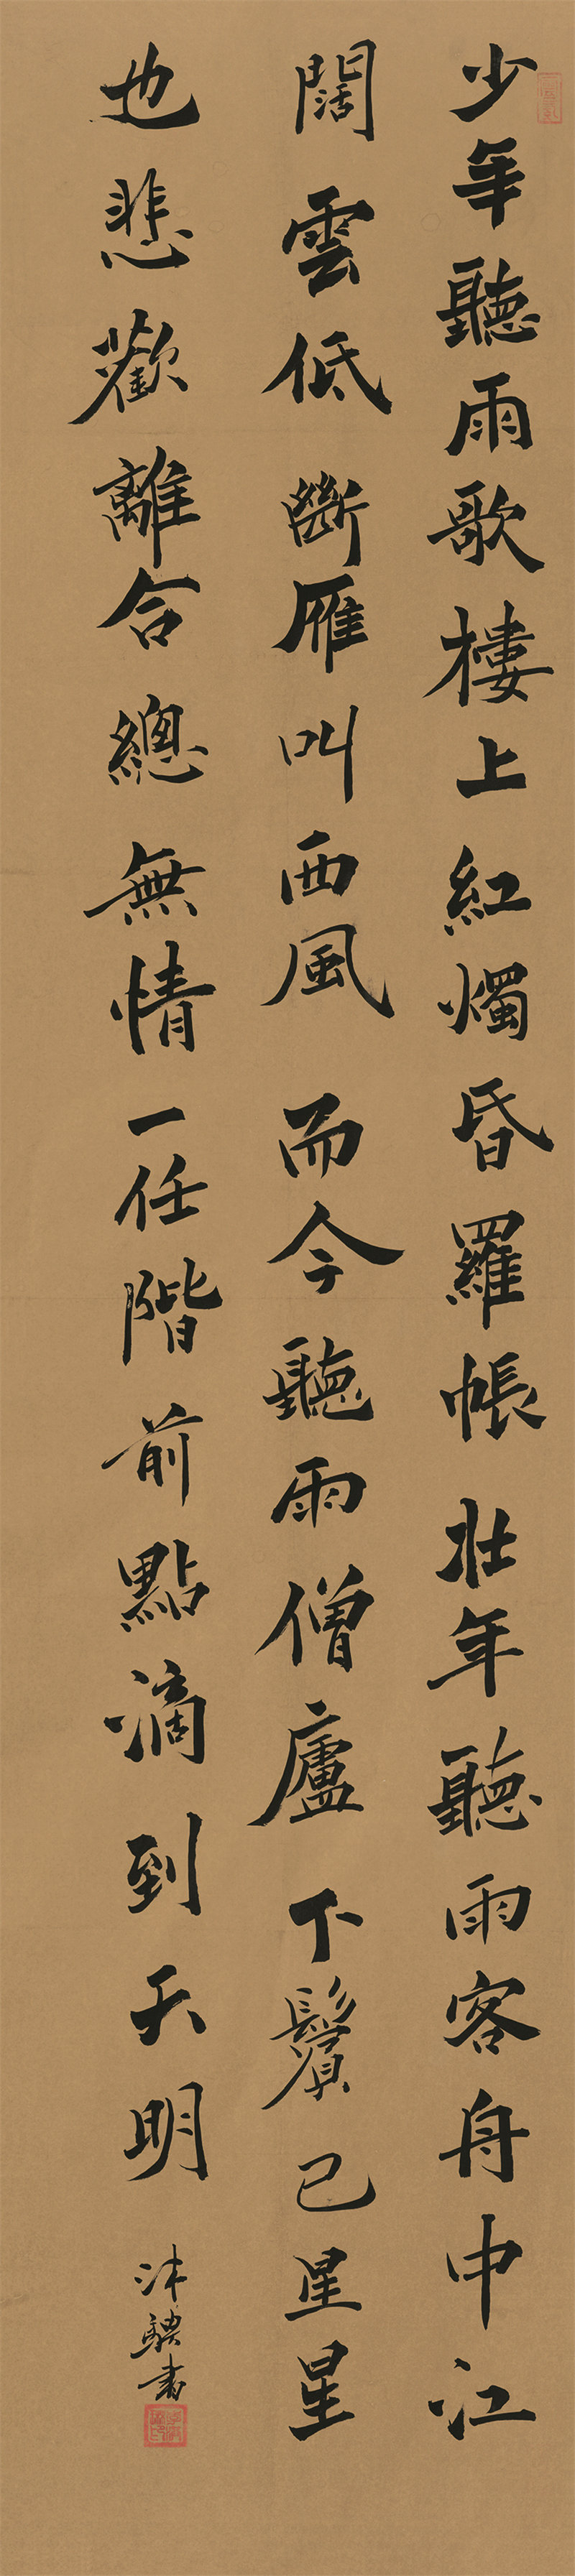 少年聽雨歌樓上紅燭昏羅帳壯年聽雨客舟中江
闊雲低斷雁叫西風而今聽雨僧廬下鬢已星星
也悲歡離合總無情一任階前點滴到天明
沐騏書